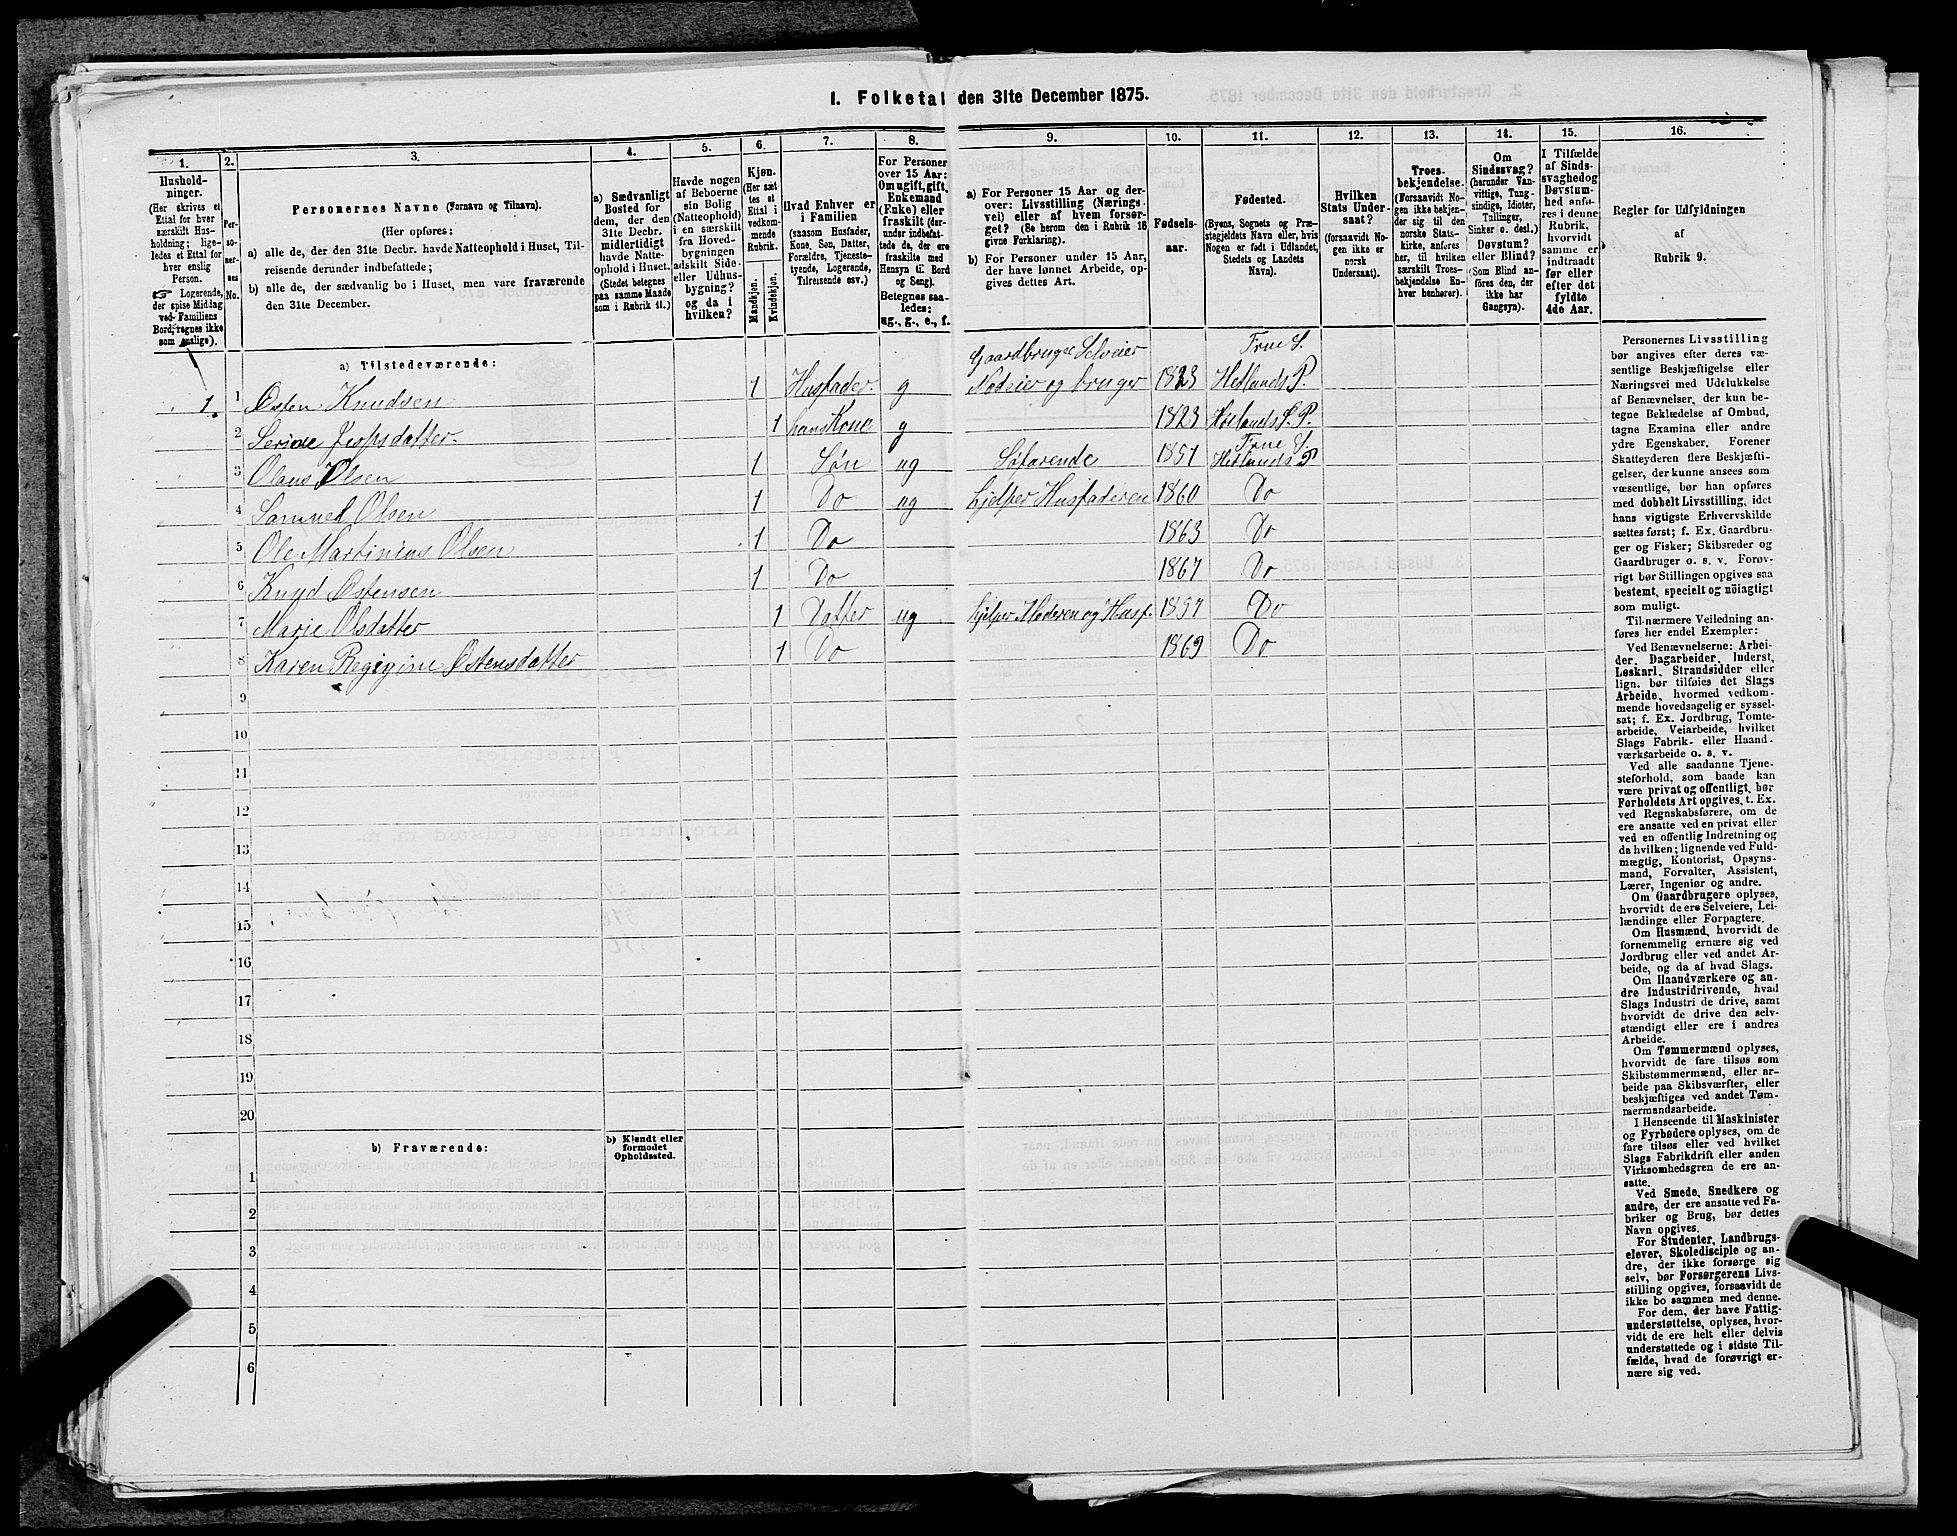 1. Folketal den 31te December 1875.
1.
2.
3.
4.
5.
6.
7.
8.
9.
10.
11.
12.
13.
14.
15.
16.
Hushold-
ninger.
(Her skrives et
Ettal for hver
særskilt Hus-
holdning; lige-
ledes et Ettal for
hver enslig
Person.
☞ Logerende,
der spise Middag
ved Familiens
Bord, regnes ikke
som enslige).
Per-
so-
ner-
nes
No.
Personernes Navne (Fornavn og Tilnavn).
(Her opføres:
a) alle de, der den 31te Decbr. havde Natteophold i Huset, Til-
reisende derunder indbefattede;
b) alle de, der sædvanlig bo i Huset, men vare fraværende
den 31te December.
a) Sædvanligt
Bosted for
dem, der den
31te Decbr.
midlertidigt
havde Natte-
ophold i Huset.
(Stedet betegnes
paa samme Maade
som i Rubrik 11.)
Havde nogen
af Beboerne
sin Bolig
(Natteophold)
i en særskilt
fra Hoved-
bygningen
adskilt Side-
eller Udhus-
bygning?
og da i
hvilken?
Kjøn.
(Her sæt-
tes et
Ettal i
vedkom-
mende
Rubrik.
Mandkjøn.
Kvindekjøn.
Hvad Enhver er
i Familien
(saasom Husfader,
Kone, Søn, Datter,
Forældre, Tjeneste-
tyende, Logerende,
Tilreisende osv.)
For Personer
over 15 Aar:
Om ugift, gift,
Enkemand
(Enke) eller
fraskilt (der-
under indbefat-
tede de, der ere
fraskilte med
Hensyn til Bord
og Seng).
Betegnes saa-
ledes:
ug., g., e., f.
a) For Personer 15 Aar og der-
over: Livsstilling (Nærings-
vei) eller af hvem forsør-
get? (Se herom den i Rubrik 16
givne Forklaring).
b) For Personer under 15 Aar,
der have lønnet Arbeide, op-
gives dettes Art.
Fødsels-
aar.
Fødested.
(Byens, Sognets og Præ-
stegjeldets Navn eller, hvis
Nogen er født i Udlandet,
Stedets og Landets
Navn).
Hvilken
Stats Under-
saat?
(forsaavidt No-
gen ikke er
norsk
Undersaat).
Troes-
bekjendelse.
(Forsaavidt No-
gen ikke bekjen-
der sig til den
norske Stats-
kirke, anføres
her, til hvilken
særskilt Troes-
bekjendelse En-
hver henhører).
Om
Sindssvag?
(herunder Van-
vittige, Tung-
sindige, Idioter,
Tullinger,
Sinker o. desl.)
Døvstum?
eller Blind?
(Som Blind an-
føres den, der
ikke har
Gangsyn).
I Tilfælde
af Sinds-
svaghed og
Døvstum-
hed anfø-
res i denne
Rubrik,
hvorvidt
samme er
indtraadt
før eller
efter det
fyldte
4de Aar.
Regler for Udfyldningen
af
Rubrik 9.
a) Tilstedeværende:
1. 1 Østen Knudsen 1 Husfader g Gaardbruger Selveier Nodeier og bruger 1823 Frue S. Hetlands P.
2 Serine Jespsdatter 1 hans Kone g 1823 Høilands S. P.
3 Olaus Olsen 1 Søn ug Søfarende 1857 Frue S. Hetlands P
4 Samuel Olsen 1 Do ug hjelper Husfaderen 1860 Do
5 Ole Martinius Olsen 1 Do 1863 Do
6 Knud Østensen 1 Do 1867 Do
7 Marie Olsdatter 1 Datter ug hjelper Moderen og Husf. 1857 Do
8 Karen Regigine Østensdatter 1 Do 1869 Do
9
10
11
12
13
14
15
16
17
18
19
20
b) Fraværende:
b) Kjendt eller
formodet
Opholdssted.
1
2
3
4
5
6
Personernes Livsstilling
bør angives efter deres væ-
sentlige Beskjæftigelse eller
Næringsvei med Udelukkelse
af Benævnelser, der kun be-
tegne Beklædelse af Ombud,
tagne Examina eller andre
ydre Egenskaber. Forener
Skatteyderen flere Beskjæfti-
gelser, der kunne ansees som
væsentlige, bør han opføres
med dobbelt Livsstilling, idet
hans vigtigste Erhvervskilde
sættes først; f. Ex. Gaardbru-
ger og Fisker; Skibsreder og
Gaardbruger o. s. v. Forøv-
rigt bør Stillingen opgives saa
bestemt, specielt og nöiagtigt
som muligt.
Til nærmere Veiledning an-
føres her endel Exempler:
Ved Benævnelserne: Arbei-
der, Dagarbeider, Inderst,
Løskarl, Strandsidder eller
lign. bør tilføies det Slags
Arbeide, hvormed vedkom-
mende hovedsagelig er syssel-
sat; f. Ex. Jordbrug, Tomte-
arbeide, Veiarbeide, hvilket
Slags Fabrik- eller Haand-
værksarbeide o. s. v.
Ved alle saadanne Tjene-
steforhold, som baade kan
være privat og offentligt, bør
Forholdets Art opgives, t. Ex.
ved Regnskabsførere, om de
ere ansatte ved en privat eller
ved en offentlig Indretning og
da hvilken; lignende ved Fuld-
mægtig, Kontorist, Opsyns-
mand, Forvalter, Assistent,
Lærer, Ingeniør og andre.
Om Gaardbrugere oplyses,
hvorvidt de ere Selveiere, Lei-
lændinge eller Forpagtere.
Om Husmænd, hvorvidt de
fornemmelig ernære sig ved
Jordbrug eller ved andet Ar-
beide, og da af hvad Slags.
Om Haandværkere og an-
dre Industridrivende, hvad
Slags Industri de drive, samt
hvorvidt de drive den selv-
stændigt eller ere i andres
Arbeide.
Om Tømmermænd oplyses,
hvorvidt de fare tilsøs som
Skibstømmermænd, eller ar-
beide paa Skibsværfter, eller
beskjæftiges ved andet Tøm-
mermandsarbeide.
I Henseende til Maskinister
og Fyrbødere oplyses, om de
fare tilsøs eller ved hvilket
Slags Fabrikdrift eller anden
Virksomhedsgren de ere an-
satte.
Ved Smede, Snedkere og
andre, der ere ansatte ved Fa-
briker og Brug, bør dettes
Navn opgives.
For Studenter, Landbrugs-
elever, Skoledisciple og an-
dre, der ikke forsørge sig
selv, bør Forsørgerens Livs-
stilling opgives, forsaavidt de
ikke bo sammen med denne.
For dem, der have Fattig-
understøttelse, oplyses, hvor-
vidt de ere helt eller delvis
understøttede og i sidste Til-
fælde, hvad de forøvrigt er-
nære sig ved.